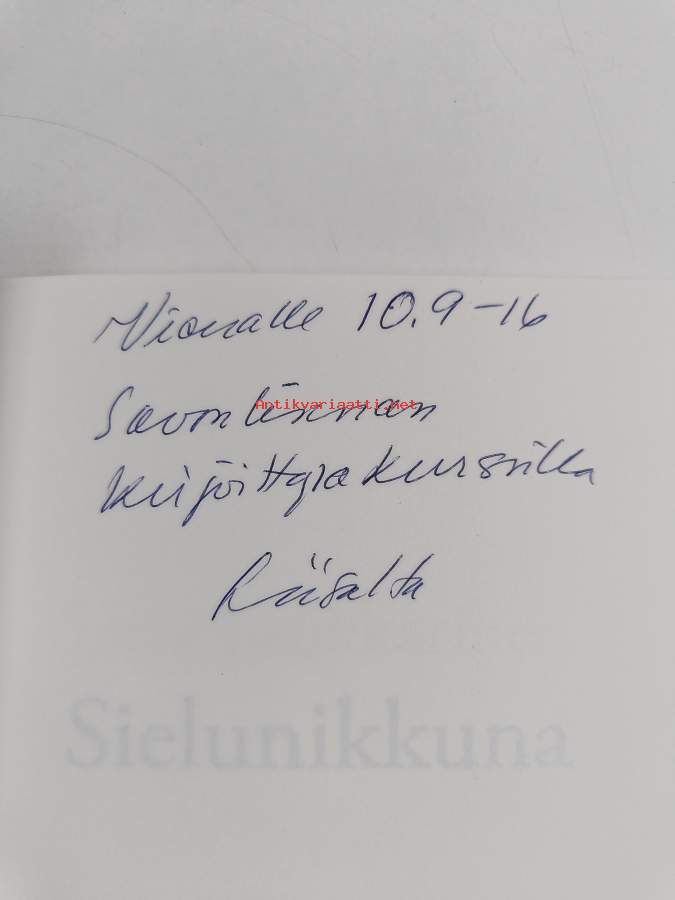 Vionalle 10.9-16
Savonlinnan
Antikvariaatti.net
kirjoittajakurssilla
Riisalta
Sielunikkuna